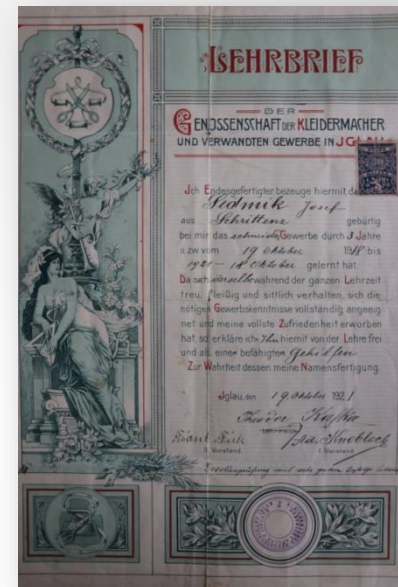 LEHRBRIEF
DER
GENOSSENSCHAFT DER KLEIDERMACHER
UND VERWANDTEN GEWERBE IN JGLAU
Ich Endesgefertigter bezeuge hiermit
Sedmik Josef
aus Schrittenz gebürtig
bei mir das schneider Gewerbe durch 3 Jahre
u. zw. vom 19 Oktober 1918 bis
1921 – 18 Oktober gelernt hat.
Da sich derselbe während der ganzen Lehrzeit
treu, fleißig und sittlich verhalten, sich die
nötigen Gewerbskenntnisse vollständig angeeig-
net und meine vollste Zufriedenheit erworben
hat so erkläre ich Ihn hiermit von der Lehre frei
und als einen befähigten Gehilfen
Zur Wahrheit dessen meine Namensfertigung.
Jglau, den 19 Oktober 1921
Theodor
Knobloch
II. Vorstand. I. Vorstand.
mit sehr gutem Erfolge